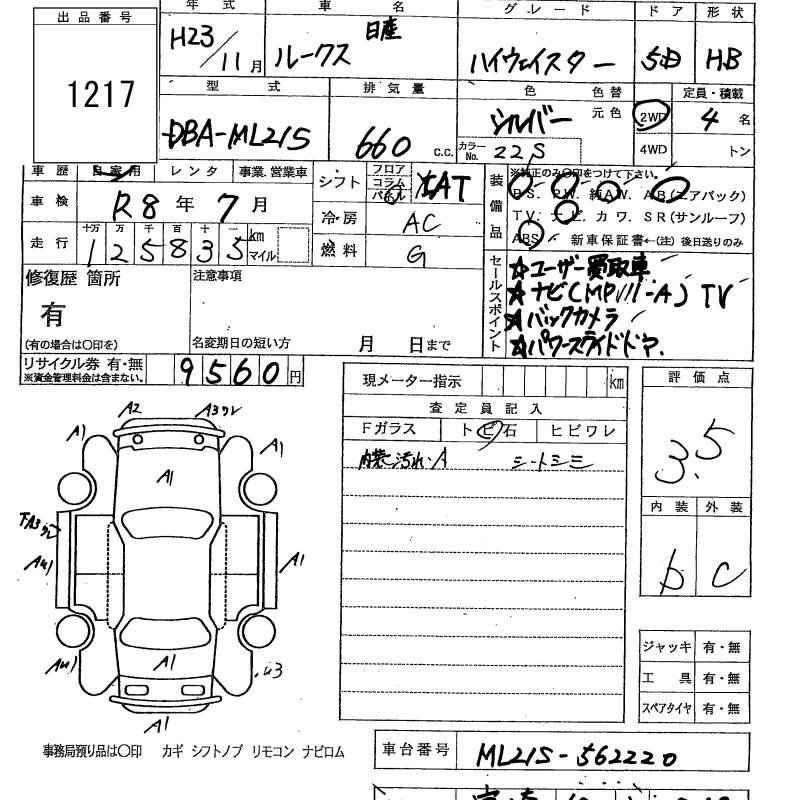 出品番号
1217
年式 車名 グレード ドア 形状
H23/11月 ルークス 日産 ハイウェイスター 5D HB
型式 排気量 色 色替 定員・積載
DBA-ML21S 660 c.c. シルバー 元色 2WD 4名
カラーNo. 22S 4WD トン
車歴 自家用 レンタ 事業.営業車
車検 R8年7月
走行 十万 万 千 百 十 一
125835 km マイル
シフト フロア コラム パネル IAT
冷房 AC
燃料 G
装備品 ※純正のみ〇印をつけて下さい。
P.S. P.W. 純A.W. A.B.(エアバック)
T.V. ナビ. カワ. S.R(サンルーフ)
ABS. 新車保証書←(注)後日送りのみ
セールスポイント
☆ユーザー買取車
☆ナビ(MP111-A) TV
☆バックカメラ
☆パワースライドドア.
修復歴 箇所
有
(有の場合は〇印を)
注意事項
名変期日の短い方 月 日まで
リサイクル券 有・無 9560円
※資金管理料金は含まない。
現メーター指示 km
査定員記入
Fガラス トビ石 ヒビワレ
内装汚れ.A シートシミ
評価点
3.5
内装 外装
b C
A2 A3クレ
A1 A1
A1
TA3クレ
AU1 A1
AU1 A1 .U3
A1
ジャッキ 有・無
工具 有・無
スペアタイヤ 有・無
事務局預り品は〇印 カギ シフトノブ リモコン ナビロム
車台番号 ML21S-562220